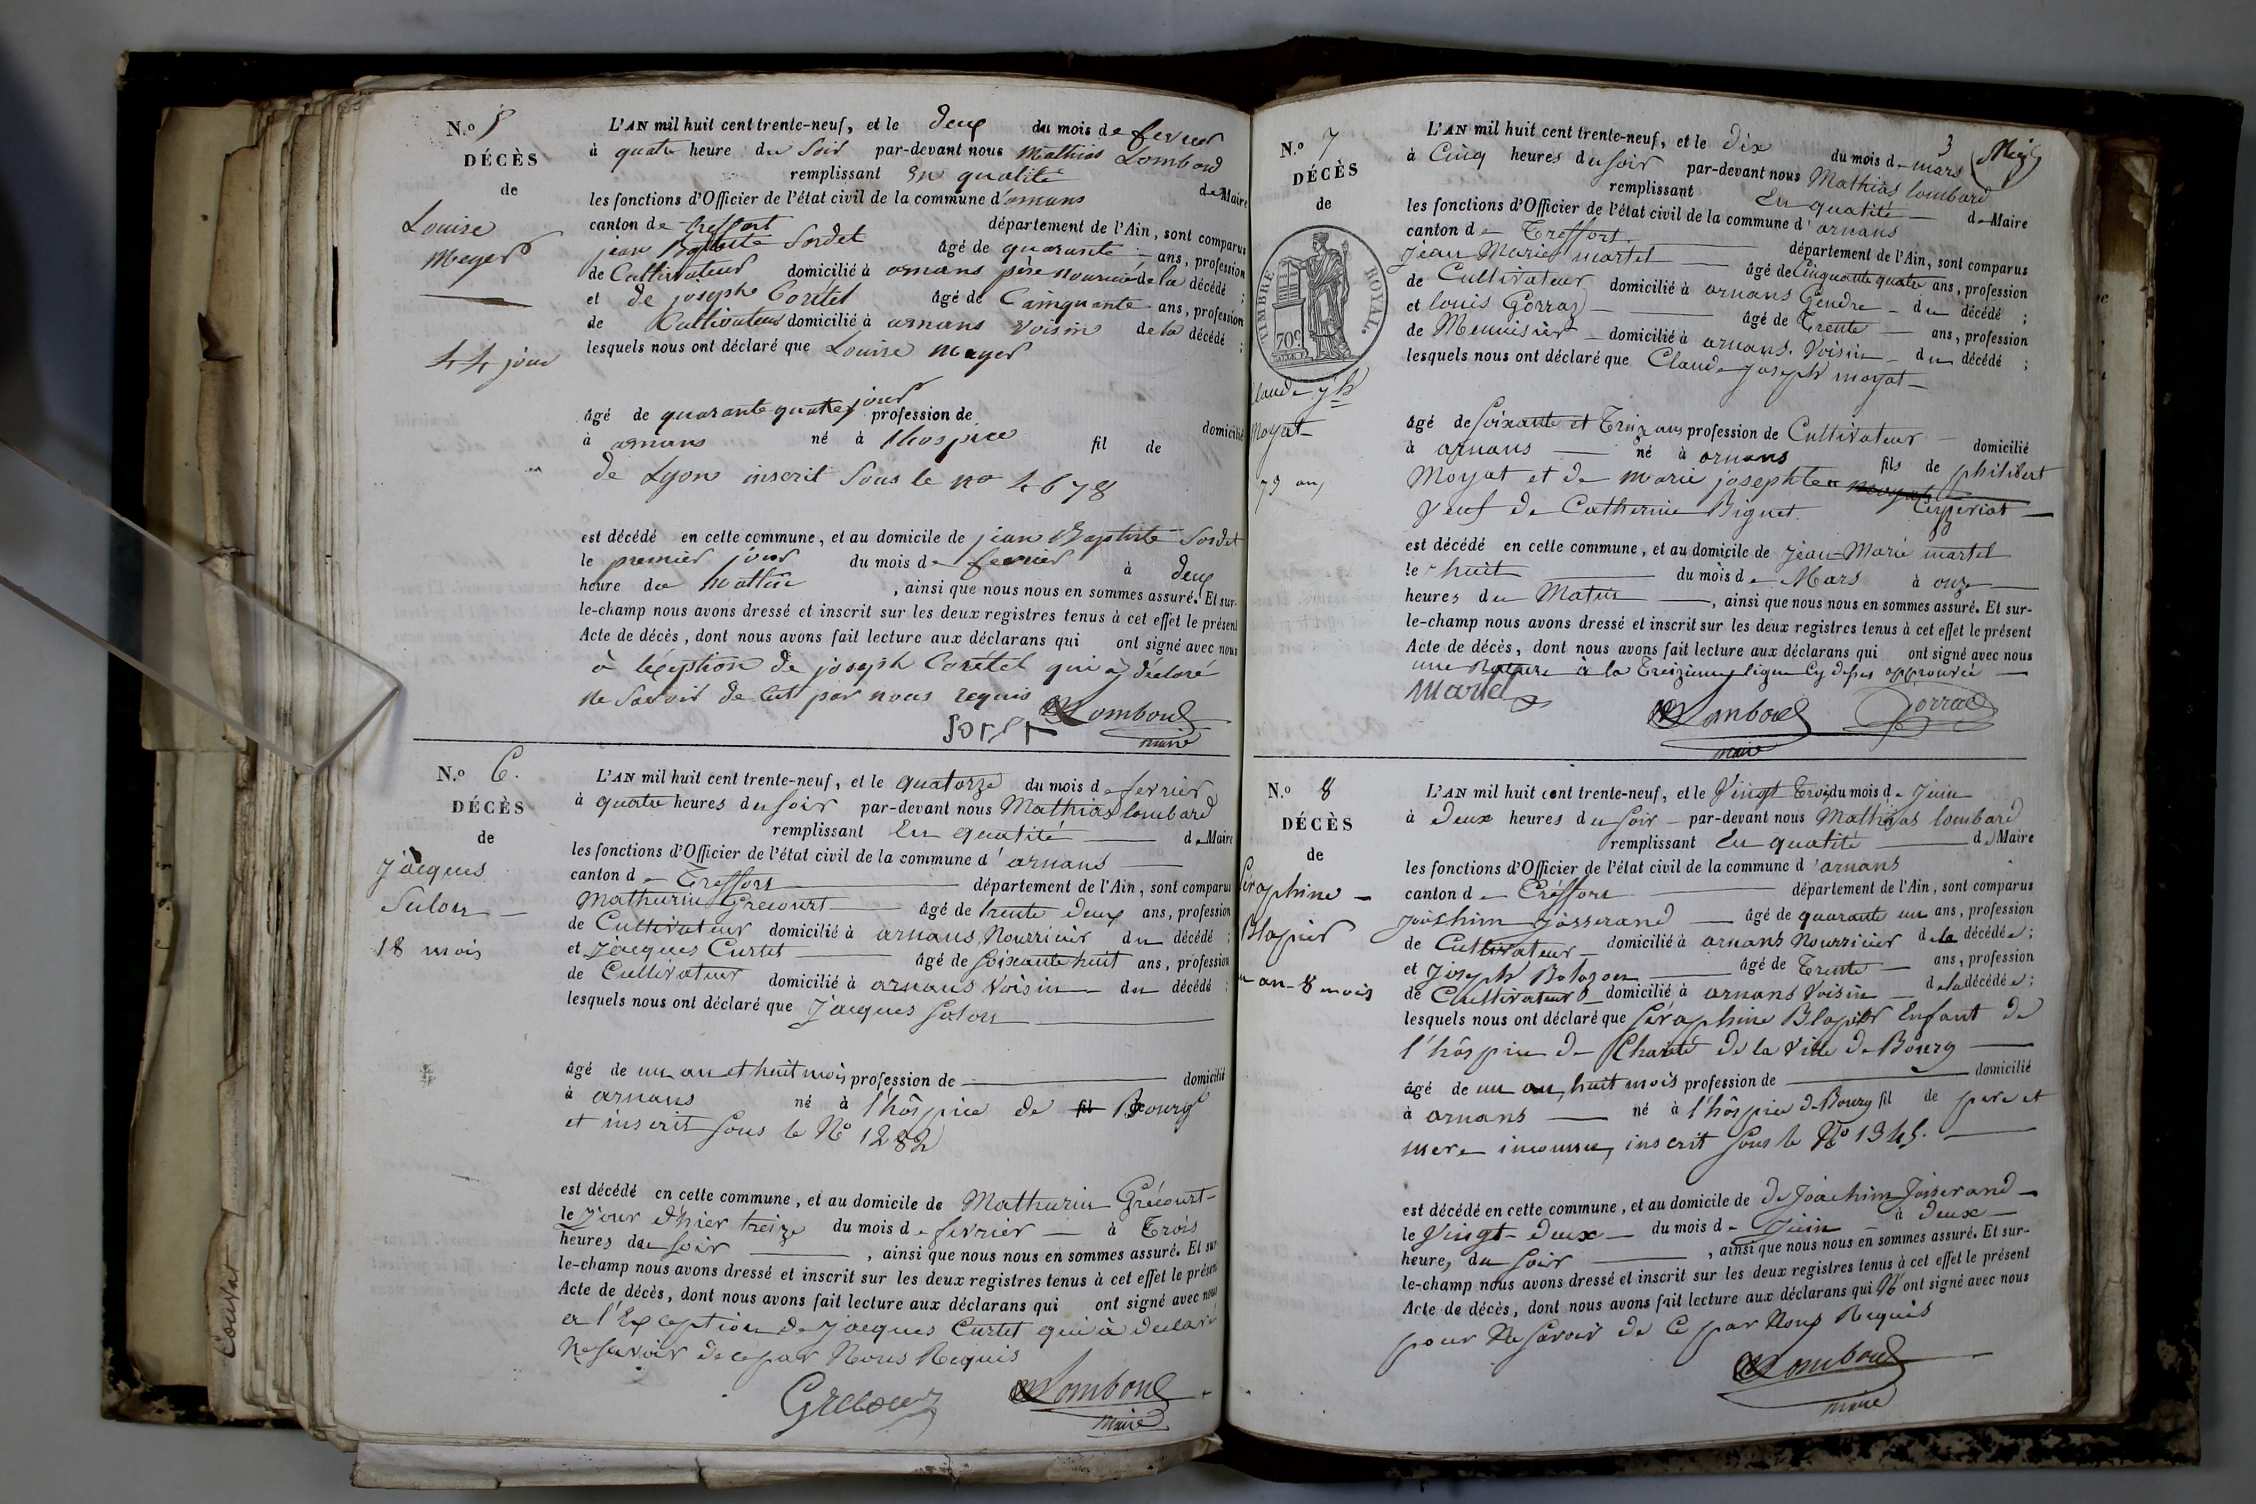 N.o 5
DÉCÈS
de
Louise
Meyer
44 jour
L'AN mil huit cent trente-neuf, et le deux du mois de fevrier
à quatre heure du Soir par-devant nous Mathias Lombard
remplissant En qualité de Maire
les fonctions d'Officier de l'état civil de la commune d'arnans
canton de treffort département de l'Ain, sont comparus
jean Baptiste Sordet âgé de quarante ans, profession
de Cultivateur domicilié à arnans père nourricier de la décédé ;
et de joseph Coretet âgé de Cainquante ans, profession
de Cultivateur domicilié à arnans voisin de la décédé ;
lesquels nous ont déclaré que Louise meyer
âgé de quarante quatre jour profession de domicilié
à arnans né à lhospice fil de
de Lyon inscrit Sous le no 4678
est décédé en cette commune, et au domicile de jean Baptiste Sordet
le premier jour du mois de fevrier à deux
heure du mattin , ainsi que nous nous en sommes assuré. Et sur-
le-champ nous avons dressé et inscrit sur les deux registres tenus à cet effet le présent
Acte de décès, dont nous avons fait lecture aux déclarans qui ont signé avec nous
à léxeption de joseph Corétet qui a déclaré
ne Savoir de cest par nous requis
Sordet MLombard
maire
N.o 6.
DÉCÈS
de
Jacques
Salon
18 mois
L'AN mil huit cent trente-neuf, et le quatorze du mois de fevrier
à quatre heures du Soir par-devant nous Mathias lombard
remplissant En qualité de Maire
les fonctions d'Officier de l'état civil de la commune d'arnans
canton de Treffort département de l'Ain, sont comparus
Mathurin Grecourt âgé de trente deux ans, profession
de Cultivateur domicilié à arnans Nourricier du décédé ;
et Jacques Curtet âgé de Soixante huit ans, profession
de Cultivateur domicilié à arnans Voisin du décédé ;
lesquels nous ont déclaré que Jacques Salon
âgé de un an et huit mois profession de domicilié
à arnans né à l'hôspice de fil Bourg
et inscrit Sous le No 1282
est décédé en cette commune, et au domicile de Mathurin Grécourt
le Jour d'hier treize du mois de fevrier à Trois
heures du Soir , ainsi que nous nous en sommes assuré. Et sur
le-champ nous avons dressé et inscrit sur les deux registres tenus à cet effet le présent
Acte de décès, dont nous avons fait lecture aux déclarans qui ont signé avec nous
a l'Exception de Jacques Curtet qui à déclaré
Ne Savoir de ce par Nous Requis
Grecour MLombard
maire
3
N.o 7
DÉCÈS
de
TIMBRE ROYAL.
70c
Claude Jh
Moyat
73 ans
L'AN mil huit cent trente-neuf, et le Dix du mois de mars
à Cinq heures du Soir par-devant nous Mathias lombard
remplissant En qualité de Maire
les fonctions d'Officier de l'état civil de la commune d'arnans
canton de Treffort département de l'Ain, sont comparus
Jean Marie martel âgé de Cinquante quatre ans, profession
de Cultivateur domicilié à arnans Gendre du décédé ;
et louis Gorraz âgé de Trente ans, profession
de Menuisier domicilié à arnans Voisin du décédé ;
lesquels nous ont déclaré que Claude Joseph moyat
âgé de Soixante et Treiz ans profession de Cultivateur domicilié
à arnans né à arnans fils de philibert
Moyat et de marie josephte moyat
Veuf de Catherine Biguet
est décédé en cette commune, et au domicile de Jean Marie martel
le huit du mois de Mars à onze
heures du Matin , ainsi que nous nous en sommes assuré. Et sur-
le-champ nous avons dressé et inscrit sur les deux registres tenus à cet effet le présent
Acte de décès, dont nous avons fait lecture aux déclarans qui ont signé avec nous
une Rature à la Treizieme ligne Cy desus approuvée
Martel
MLombard Gorraz
maire
N.o 8
DÉCÈS
de
Seraphine
Blapier
un an 8 mois
L'AN mil huit cent trente-neuf, et le Vingt Trois du mois de Juin
à Deux heures du Soir par-devant nous Mathias lombard
remplissant En qualité de Maire
les fonctions d'Officier de l'état civil de la commune d'arnans
canton de Tréffort département de l'Ain, sont comparus
Joachim Josserand âgé de quarante un ans, profession
de Cultivateur domicilié à arnans Nourricier de la décédée ;
et Joseph âgé de Trente ans, profession
de Cultivateur domicilié à arnans Voisin de la décédée ;
lesquels nous ont déclaré que Séraphine Blapier Enfant de
l'hôspice de Charité de la Ville de Bourg
âgé de un an, huit mois profession de domicilié
à arnans né à l'hôspice de Bourg fil de pere et
mere inconnu, inscrit Sous le No 1345.
est décédé en cette commune, et au domicile de de Joachim Josserand
le Vingt-Deux du mois de Juin à deux
heures du Soir , ainsi que nous nous en sommes assuré. Et sur-
le-champ nous avons dressé et inscrit sur les deux registres tenus à cet effet le présent
Acte de décès, dont nous avons fait lecture aux déclarans qui N'ont signé avec nous
pour Ne Savoir de Ce par Nous Requis
MLombard
maire